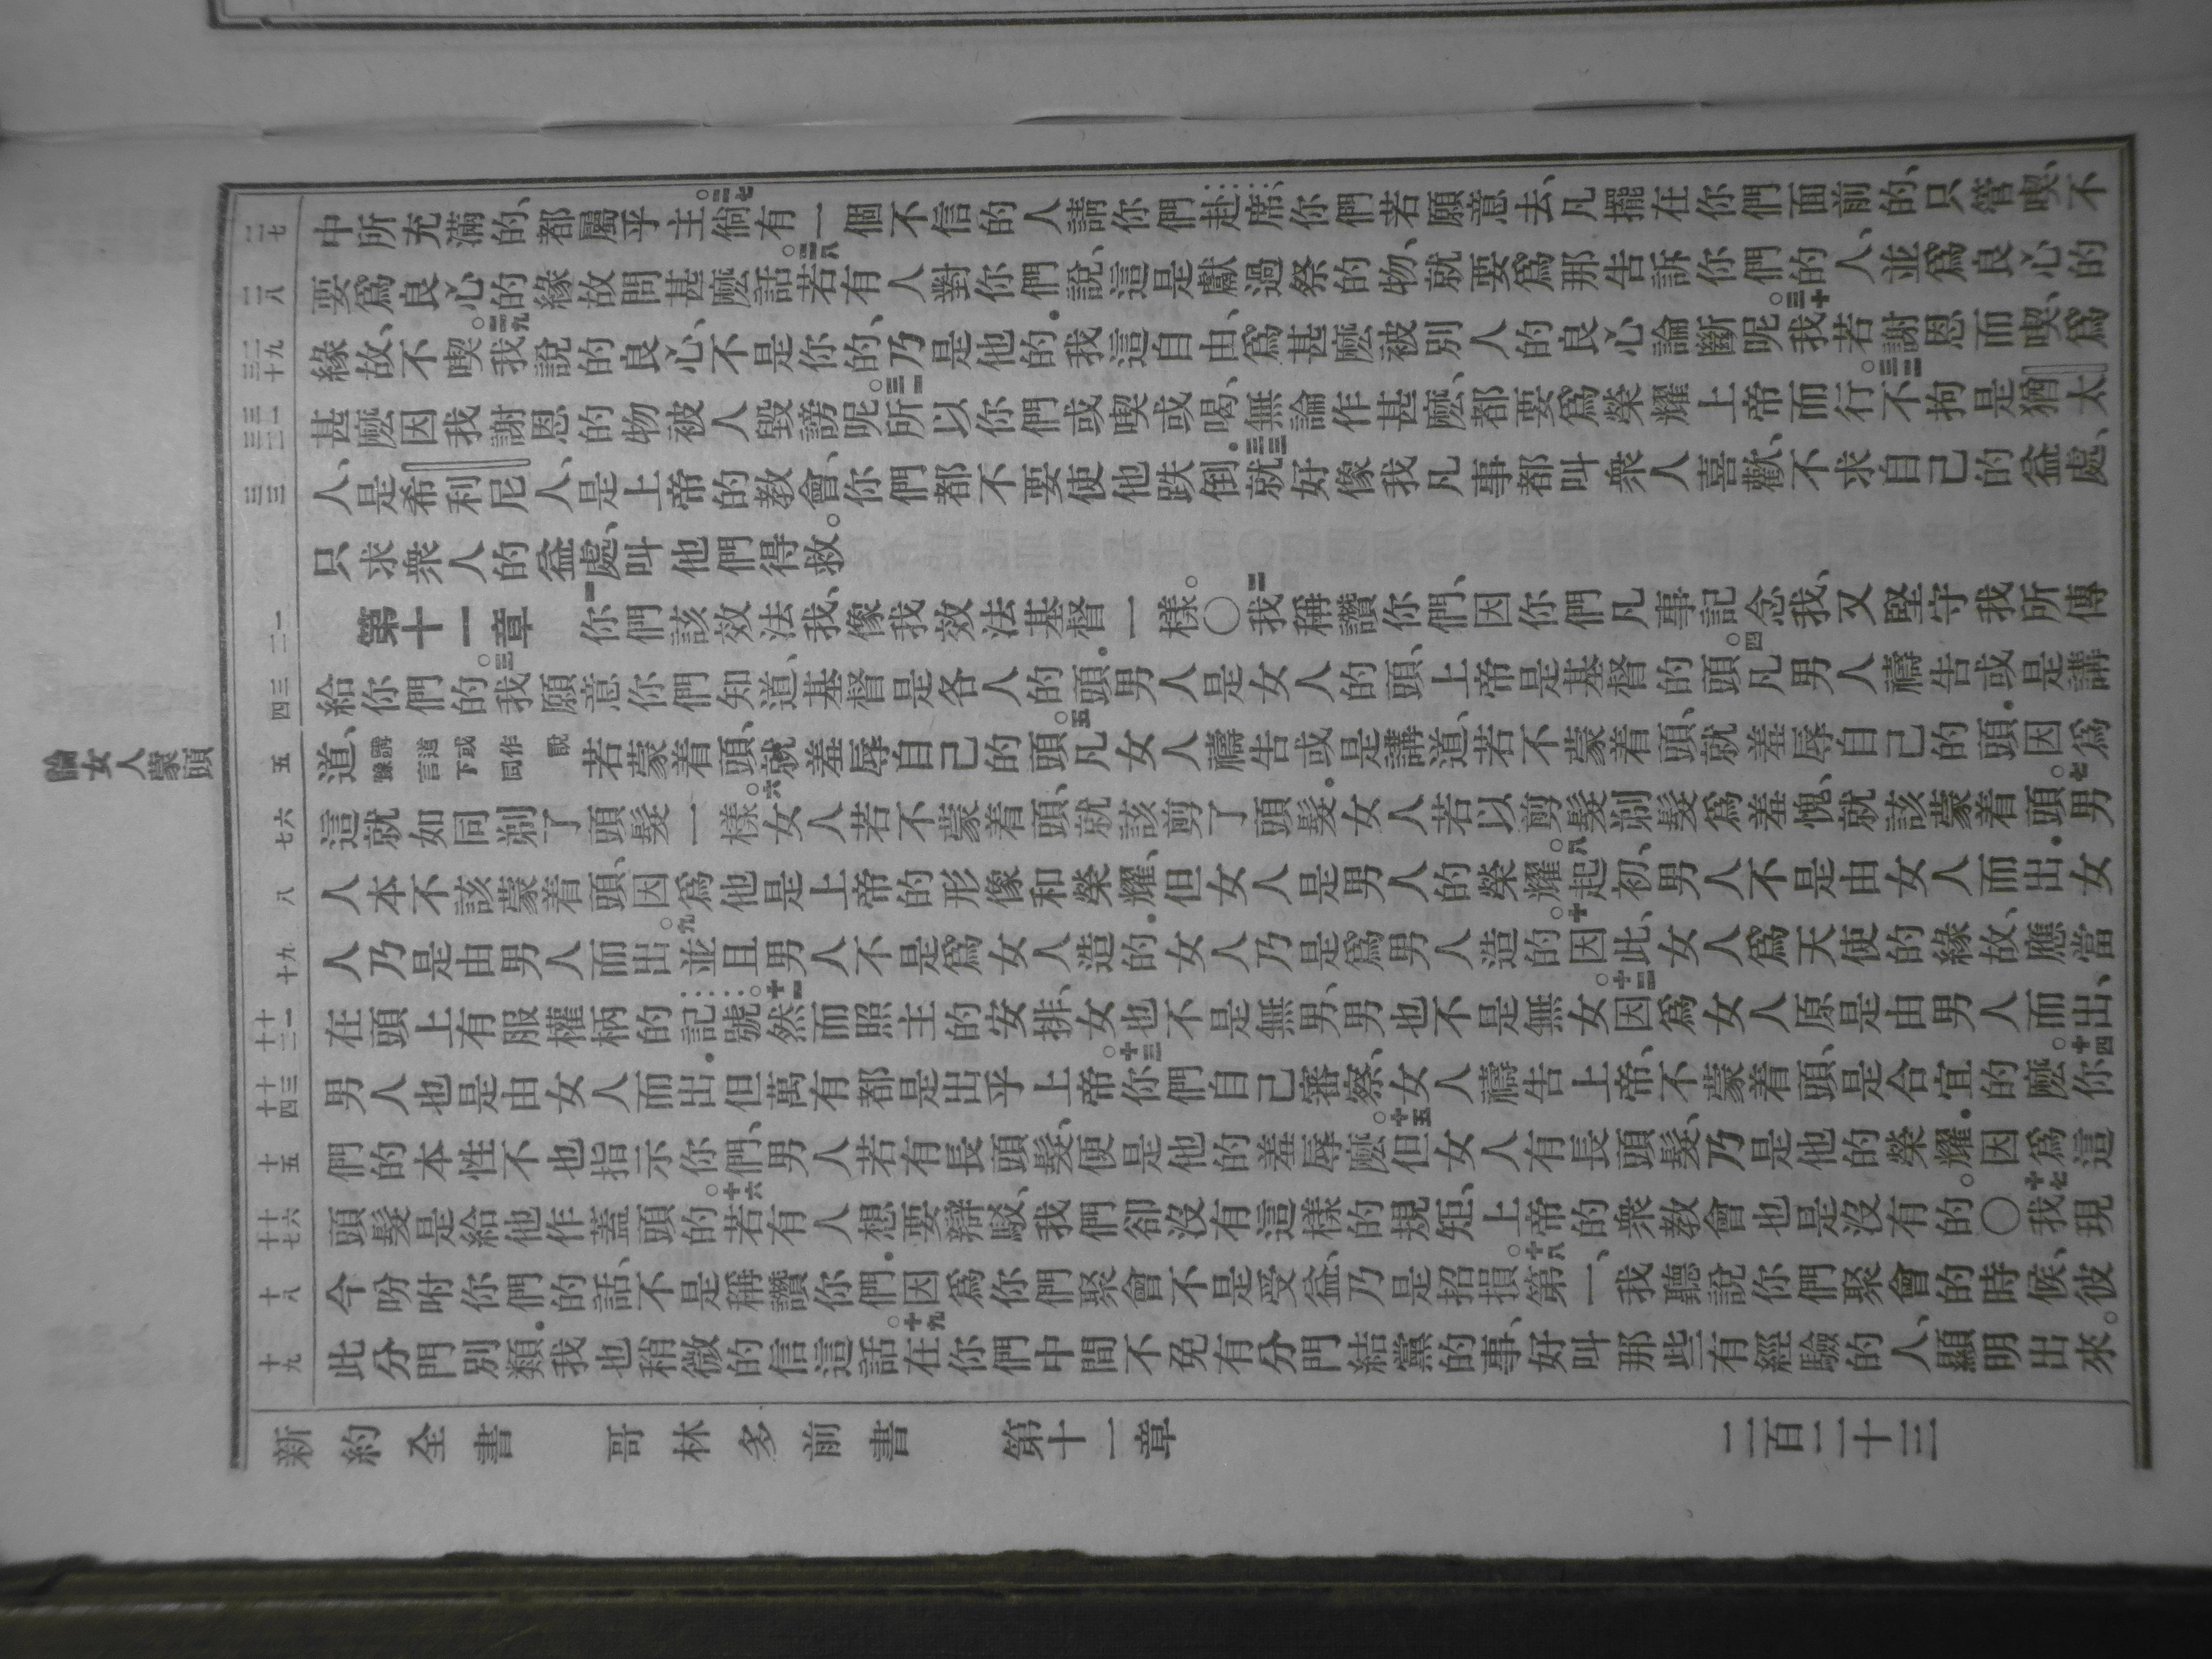 論女人蒙頭
二七 二八 二九 三十 三一 三二 三三 一 二 三 四 五 六 七 八 九 十 十一 十二 十三 十四 十五 十六 十七 十八 十九
中所充滿的、都屬乎主。二七倘有一個不信的人請你們赴席、你們若願意去、凡擺在你們面前的、只管喫、不
要爲良心的緣故問甚麼話。二八若有人對你們說、這是獻過祭的物、就要爲那告訴你們的人、並爲良心的
緣故、不喫。二九我說的良心、不是你的、乃是他的.我這自由、爲甚麼被別人的良心論斷呢。三十我若謝恩而喫、爲
甚麼因我謝恩的物被人毀謗呢。三一所以你們或喫或喝、無論作甚麼、都要爲榮耀上帝而行。三二不拘是猶太
人、是希利尼人、是上帝的教會、你們都不要使他跌倒.三三就好像我凡事都叫衆人喜歡、不求自己的益處、
只求衆人的益處、叫他們得救。
第十一章 一你們該效法我、像我效法基督一樣。〇二我稱讚你們、因你們凡事記念我、又堅守我所傳
給你們的。三我願意你們知道、基督是各人的頭.男人是女人的頭、上帝是基督的頭。四凡男人禱告或是講
道、講道或作說豫言下同若蒙着頭、就羞辱自己的頭。五凡女人禱告或是講道、若不蒙着頭、就羞辱自己的頭.因爲
這就如同剃了頭髮一樣。六女人若不蒙着頭、就該剪了頭髮.女人若以剪髮剃髮爲羞愧、就該蒙着頭。七男
人本不該蒙着頭、因爲他是上帝的形像和榮耀、但女人是男人的榮耀。八起初、男人不是由女人而出.女
人乃是由男人而出。九並且男人不是爲女人造的.女人乃是爲男人造的。十因此、女人爲天使的緣故、應當
在頭上有服權柄的記號。十一然而照主的安排、女也不是無男、男也不是無女。十二因爲女人原是由男人而出、
男人也是由女人而出.但萬有都是出乎上帝。十三你們自己審察、女人禱告上帝、不蒙着頭、是合宜的麼。十四你
們的本性不也指示你們、男人若有長頭髮、便是他的羞辱麼。十五但女人有長頭髮、乃是他的榮耀.因爲這
頭髮是給他作蓋頭的。十六若有人想要辯駁、我們卻沒有這樣的規矩、上帝的衆教會也是沒有的。〇十七我現
今吩咐你們的話、不是稱讚你們.因爲你們聚會不是受益、乃是招損。十八第一、我聽說你們聚會的時候、彼
此分門別類.我也稍微的信這話。十九在你們中間不免有分門結黨的事、好叫那些有經驗的人、顯明出來。
新約全書 哥林多前書 第十一章 二百二十三